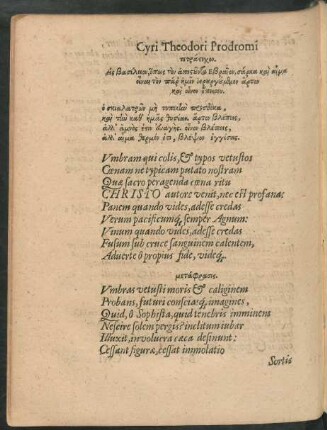 Cyri Theodori Prodromi
ὁ σκιολατρῶν μὴ
καὶ τῶν καθ᾽ ἡμᾶς ἄρτον βλέπεις,
οἶνον βλέπεις,
ἀλλ᾽ αἷμα θερμόν ἐστι, βλέψον ἐγγύθεν.
Vmbram qui colis, & typos vetustos
Cœnam ne typicam putato nostram
Quæ sacro peragenda cœna ritu
CHRISTO autore venit, nec est profana:
Panem quando vides, adesse credas
Verum pacificumq; semper Agnum:
Vinum quando vides, adesse credas
Fusum sub cruce sanguinem calentem,
Aduerte ô propius fide, videq;.
μετάφρασις.
Vmbras vetusti moris & caliginem
Probans, futuri consciasq; imagines,
Quid, ô Sophista, quid tenebris imminens
Nescire solem pergis? inclitum iubar
Illuxit, involucra cæca desinunt:
Cessant figuræ, cessat immolatio
Sortis